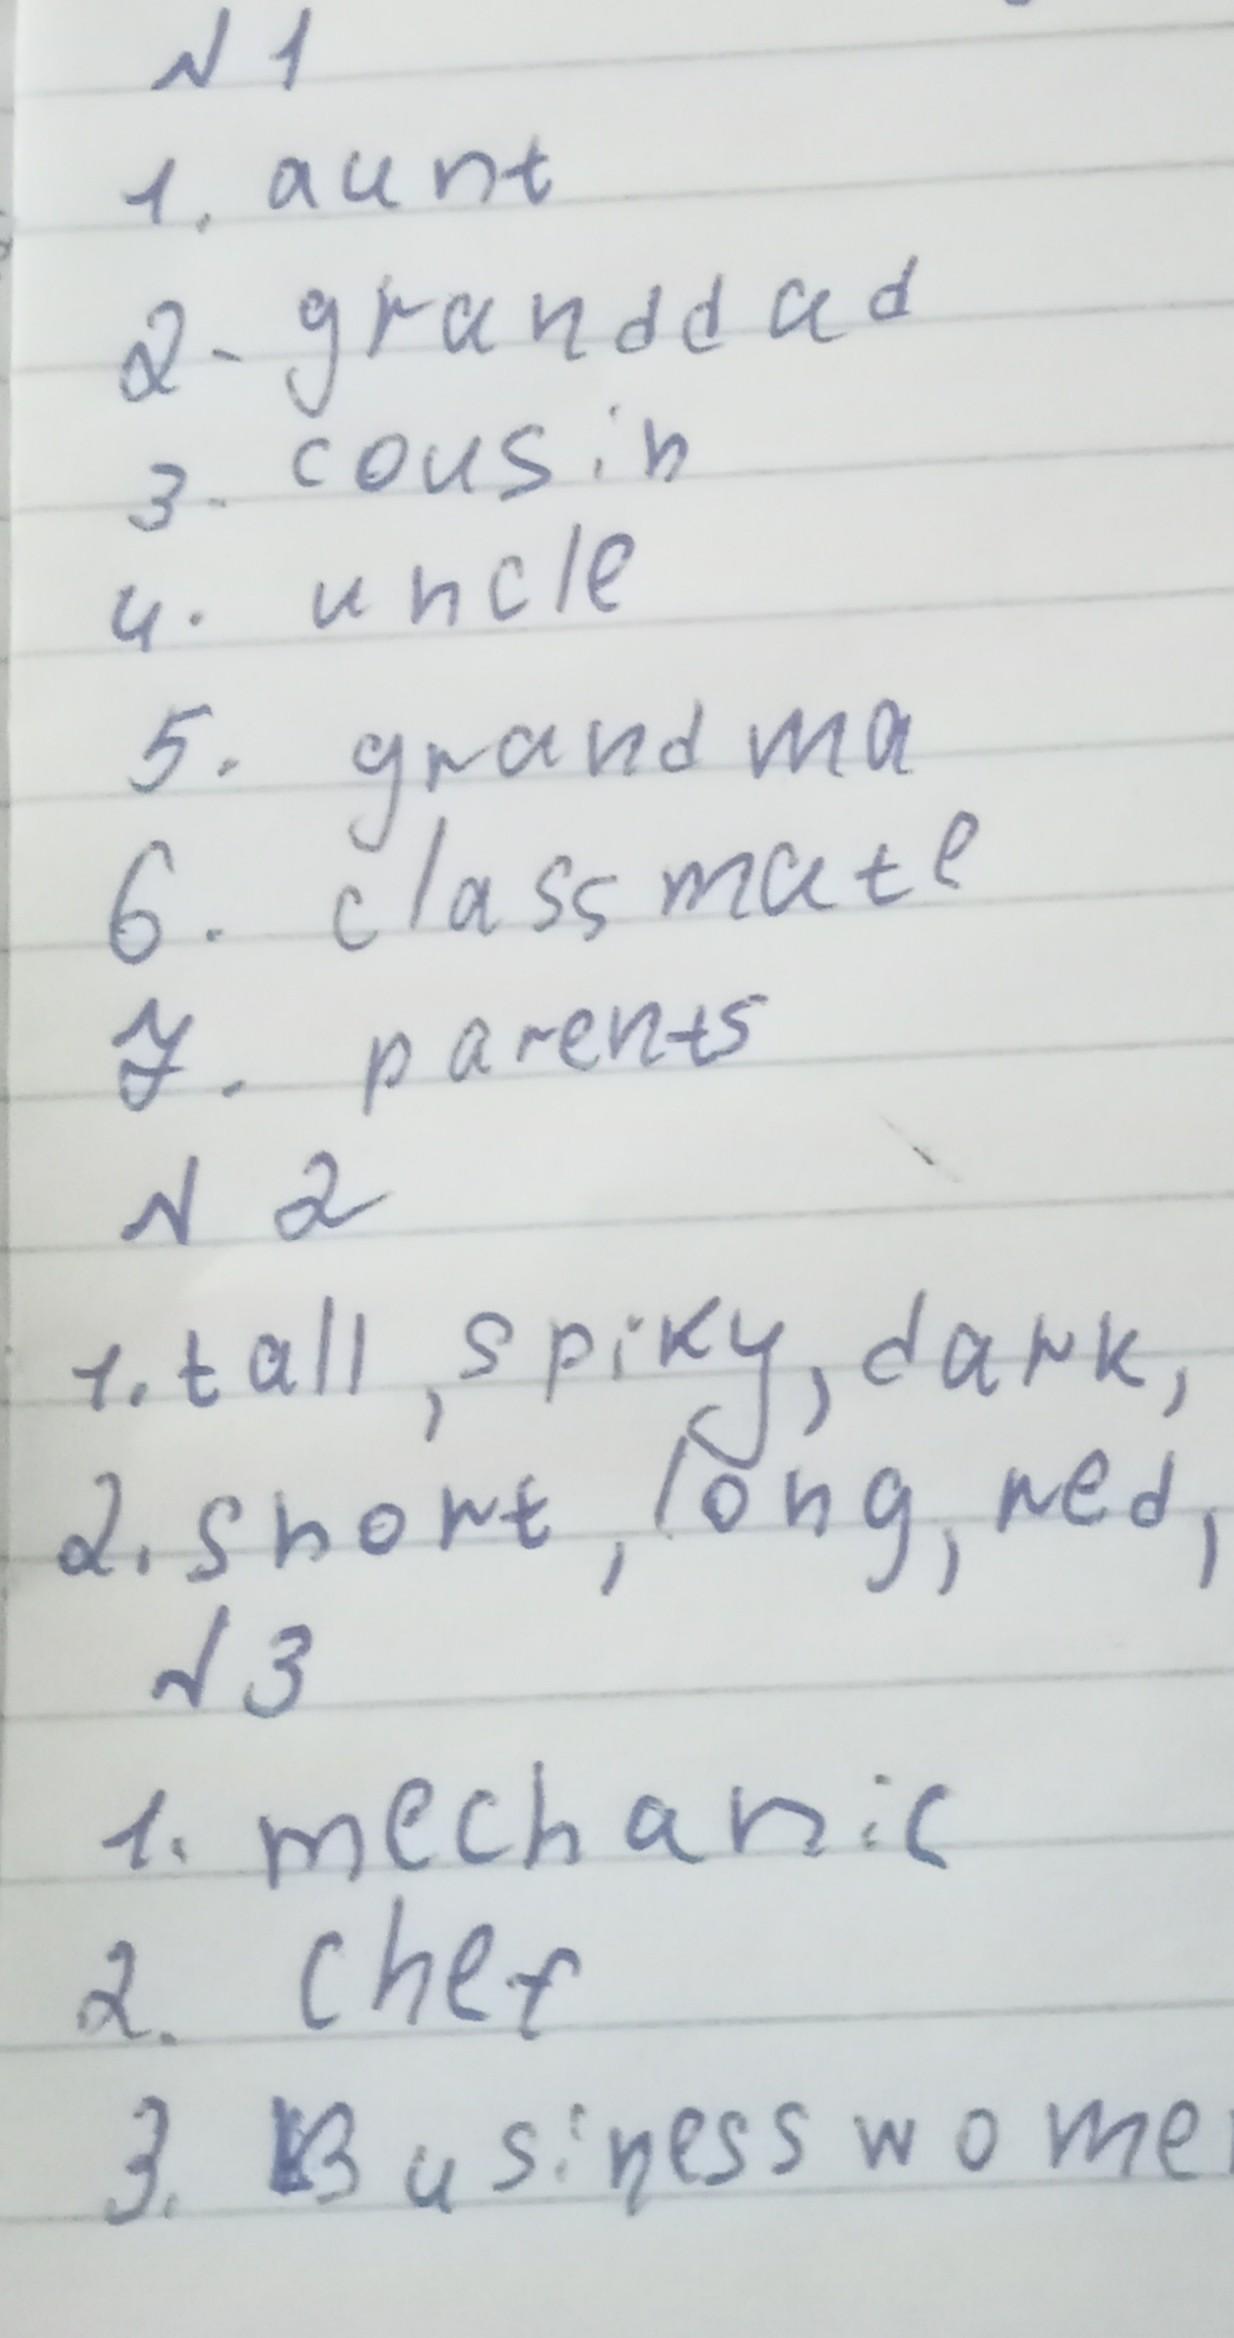 N 1
1. aunt
2- granddad
3. cousin
4. uncle
5. grandma
6. classmate
7. parents
N 2
1. tall, spiky, dark,
2. short, long, red,
N 3
1. mechanic
2. chef
3. Businesswome